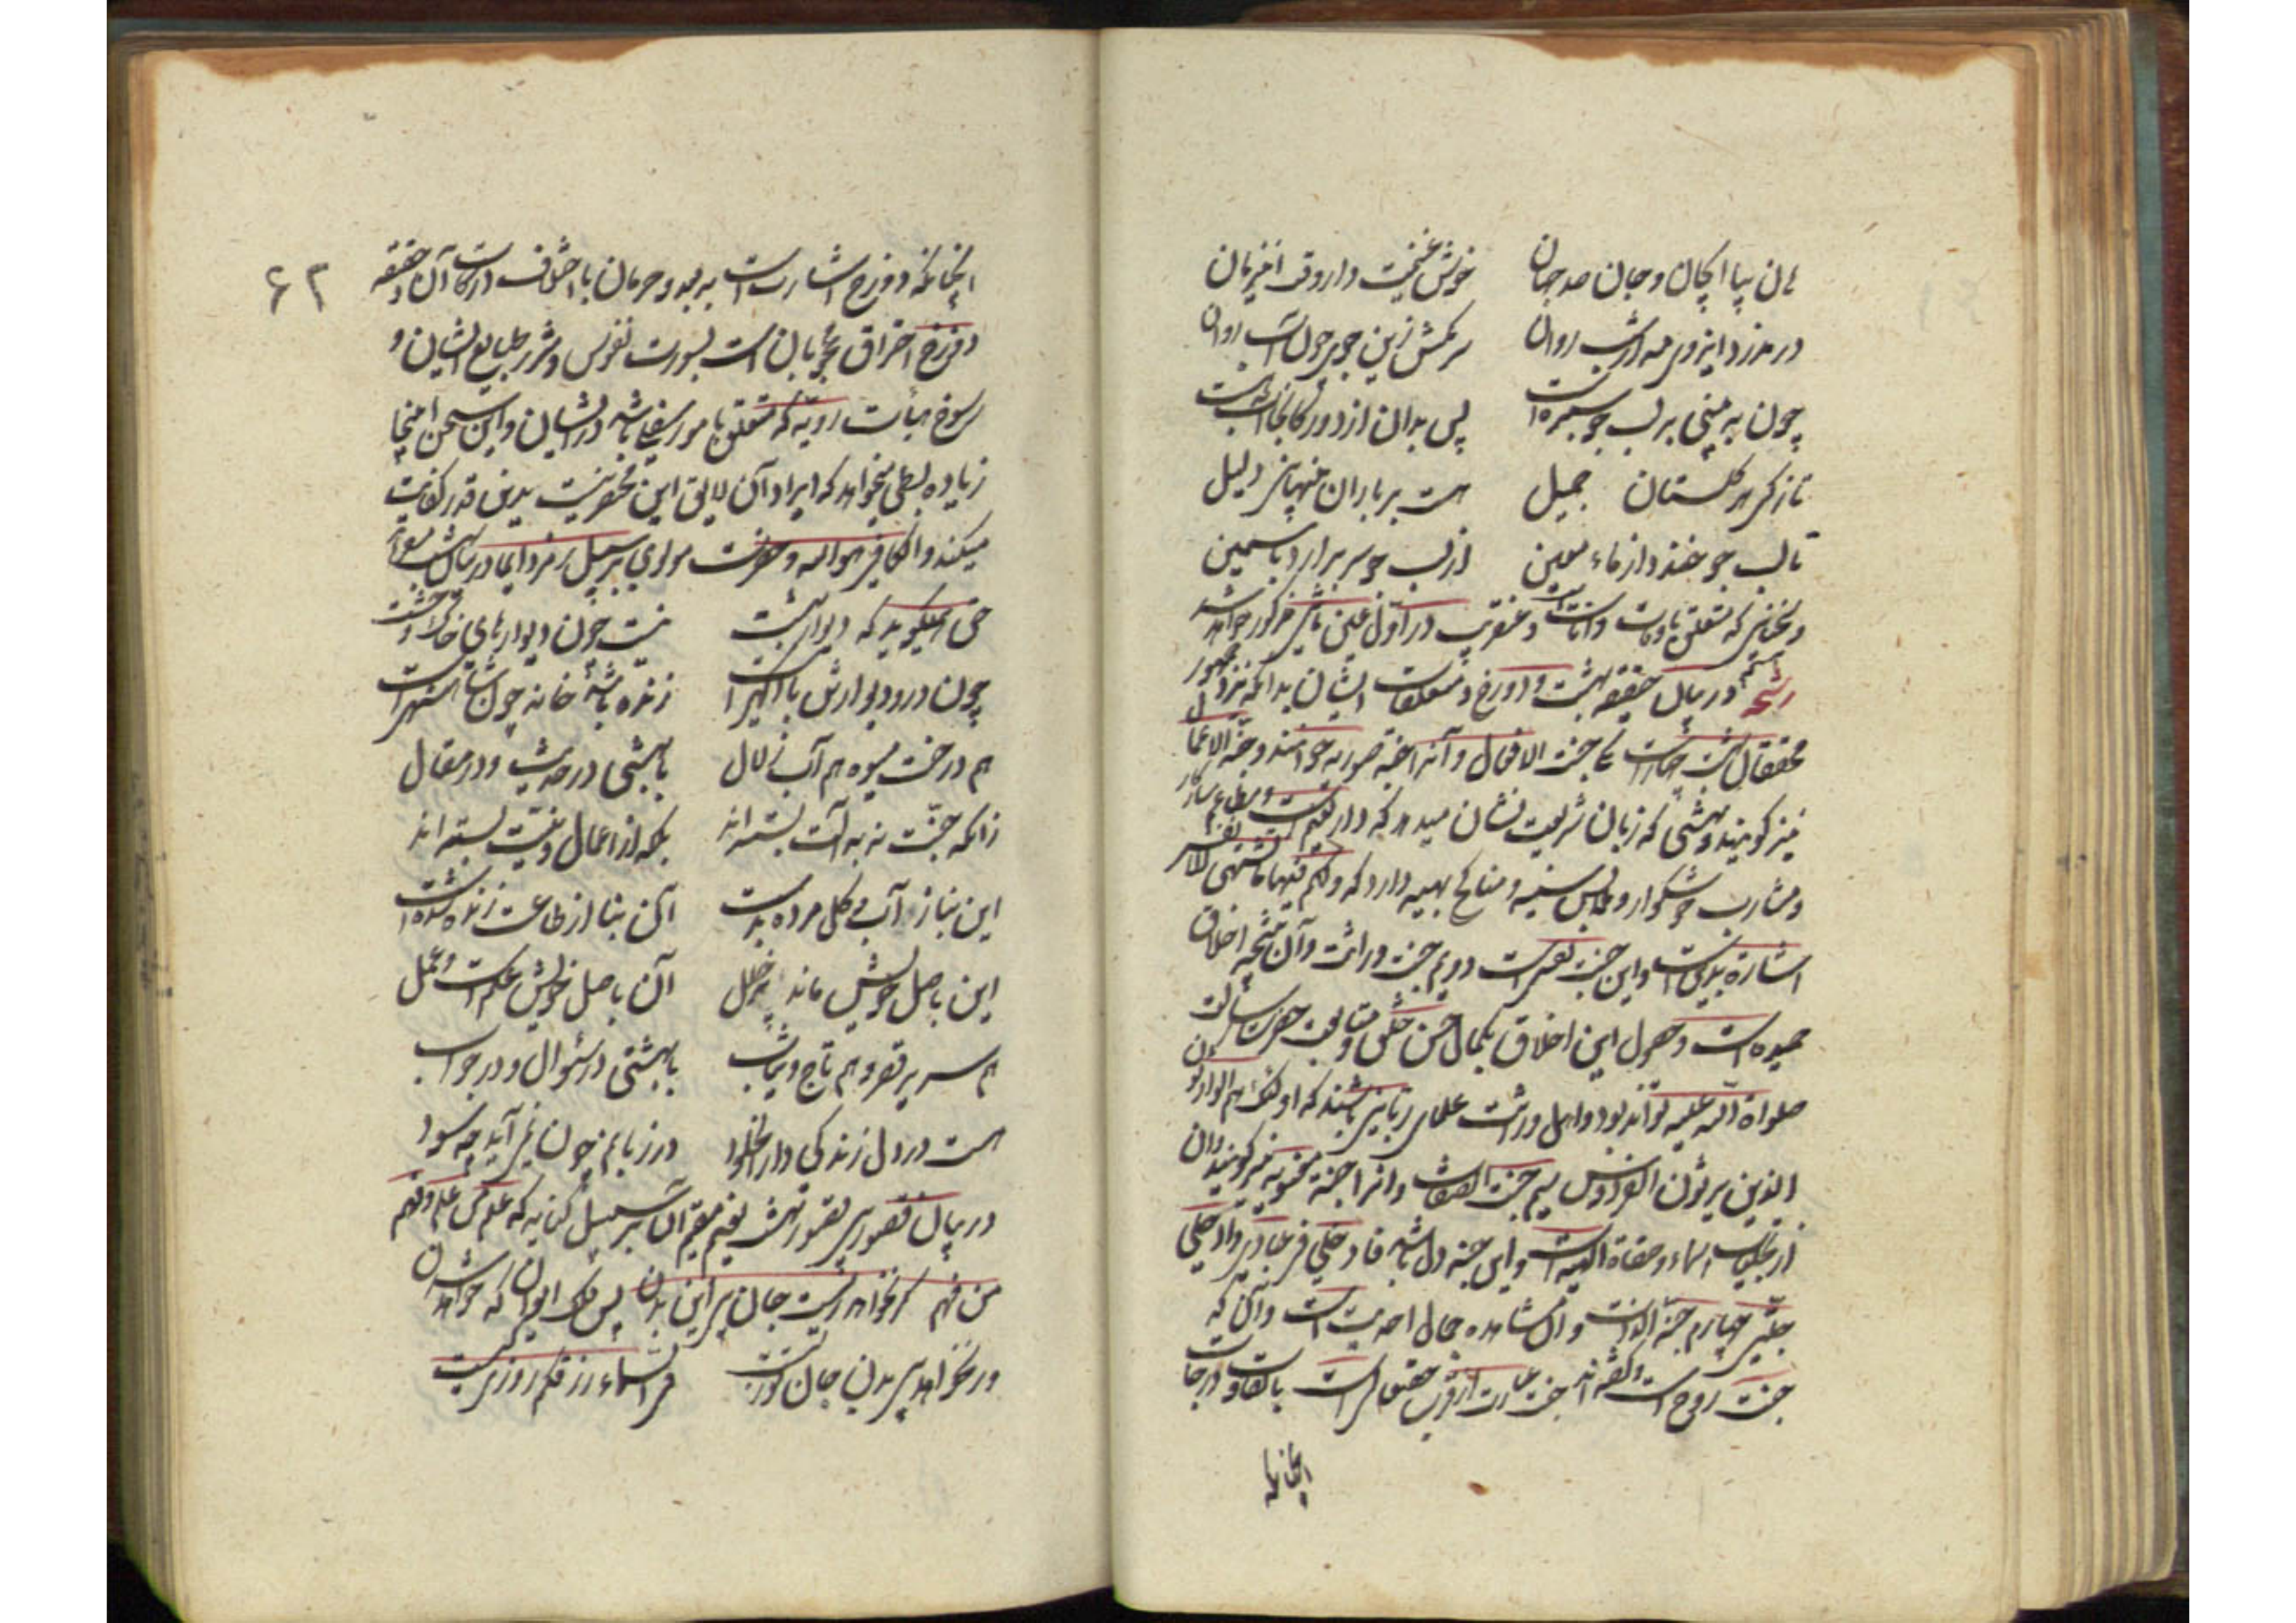 هان بیا ای جان و جان صد جهان
خوش غنیمت دار وقت این زمان
در مدزد این روی مه از شب روان
سر مکش زین جوی چون آب روان
چون به بینی بر لب جو سبزه است
پس بدان از دور کانجا آب هست
تازگی هر گلستان جمیل
هست بر باران پنهانی دلیل
تا لب جو خندد از ماء معین
از لب جو سر برآرد یاسمین
در بیان حقیقه بهشت و دوزخ و متعلقات ایشان بدانکه نزد جمهور
محققان بهشت چهارست یکی جنت الافعال و آنرا جنه صوریه خوانند و جنه الاعمال
نیز گویند و بهشتی که زبان شریعت نشان میدهد که دار نعیمست و مطاعم سازگار
و مشارب خوشگوار و ملابس سنیه و مناکح بهیه دارد که و لکم فیها ما تشتهی الانفس
اشارة بدین است و این جنت نفس است دویم جنت وراثت و آن نتیجه اخلاق
حمیده است و حصول این اخلاق بکمال حسن خلق و متابعت حضرت رسالت
صلواة الله علیه تواند بود و اهل وراثت علمای ربانی باشند که اولئک هم الوارثون
الذین یرثون الفردوس سیم جنت الصفات و انرا جنة معنویه نیز گویند و آن
از تجلیات اسماء و صفاة الهیه است و این جنه دل باشد فادخلی فی عبادی وادخلی
جنتی چهارم جنة الذات و آن مشاهده جمال احدیت است و آنرا که
جنت روح است و گفته اند جنت عبارت از قرب حقیقی است با تفاوت درجات
انجانکه
۶۲
انجانکه دوزخ اشارت است به بعد و حرمان با اختلاف درکات آن و حقیقه
دوزخ احتراق محجوبان است بصورت نفوس و شرر طبایع ایشان و
رسوخ هیأت ردیه که متعلق بامور سفلی باشد در ایشان و این سخن اینجا
زیاده بسطی میخواهد که ایراد آن لایق این مختصر نیست بدین قدر کفایت
میکند والکافی هو الله و حضرت مولوی بر سبیل رمز و ایما در بیان بهشت میفرماید
حق همیگوید که دیوار بهشت
نیست چون دیوارهای خاک و خشت
چون در و دیوارش با آگهی است
زنده باشد خانه چون شاهنشهی است
هم درخت میوه هم آب زلال
با بهشتی در حدیث و در مقال
زانکه جنت نه به آلت بسته اند
بلکه از اعمال و نیت بسته اند
این بنا ز آب و گل مرده بدست
آن بنا از طاعت زنده شده است
این باصل خویش ماند پر خلل
آن باصل خویش علم است و عمل
هم سریر قصر و هم تاج و ثیاب
با بهشتی در سؤال و در جواب
هست در دل زندگی دار الخلود
در زبانم چون نمی آید چه سود
در بیان قصور بی قصور بهشت نعیم مقیم آن بر سبیل کنایه که علم من علم و فهم
من فهم گر نخواهد زیست جان بی این بدن پس فلک ایوان که خواهد شدن
ور نخواهد بی بدن جان تو زیست
فی السماء رزقکم روزی کیست